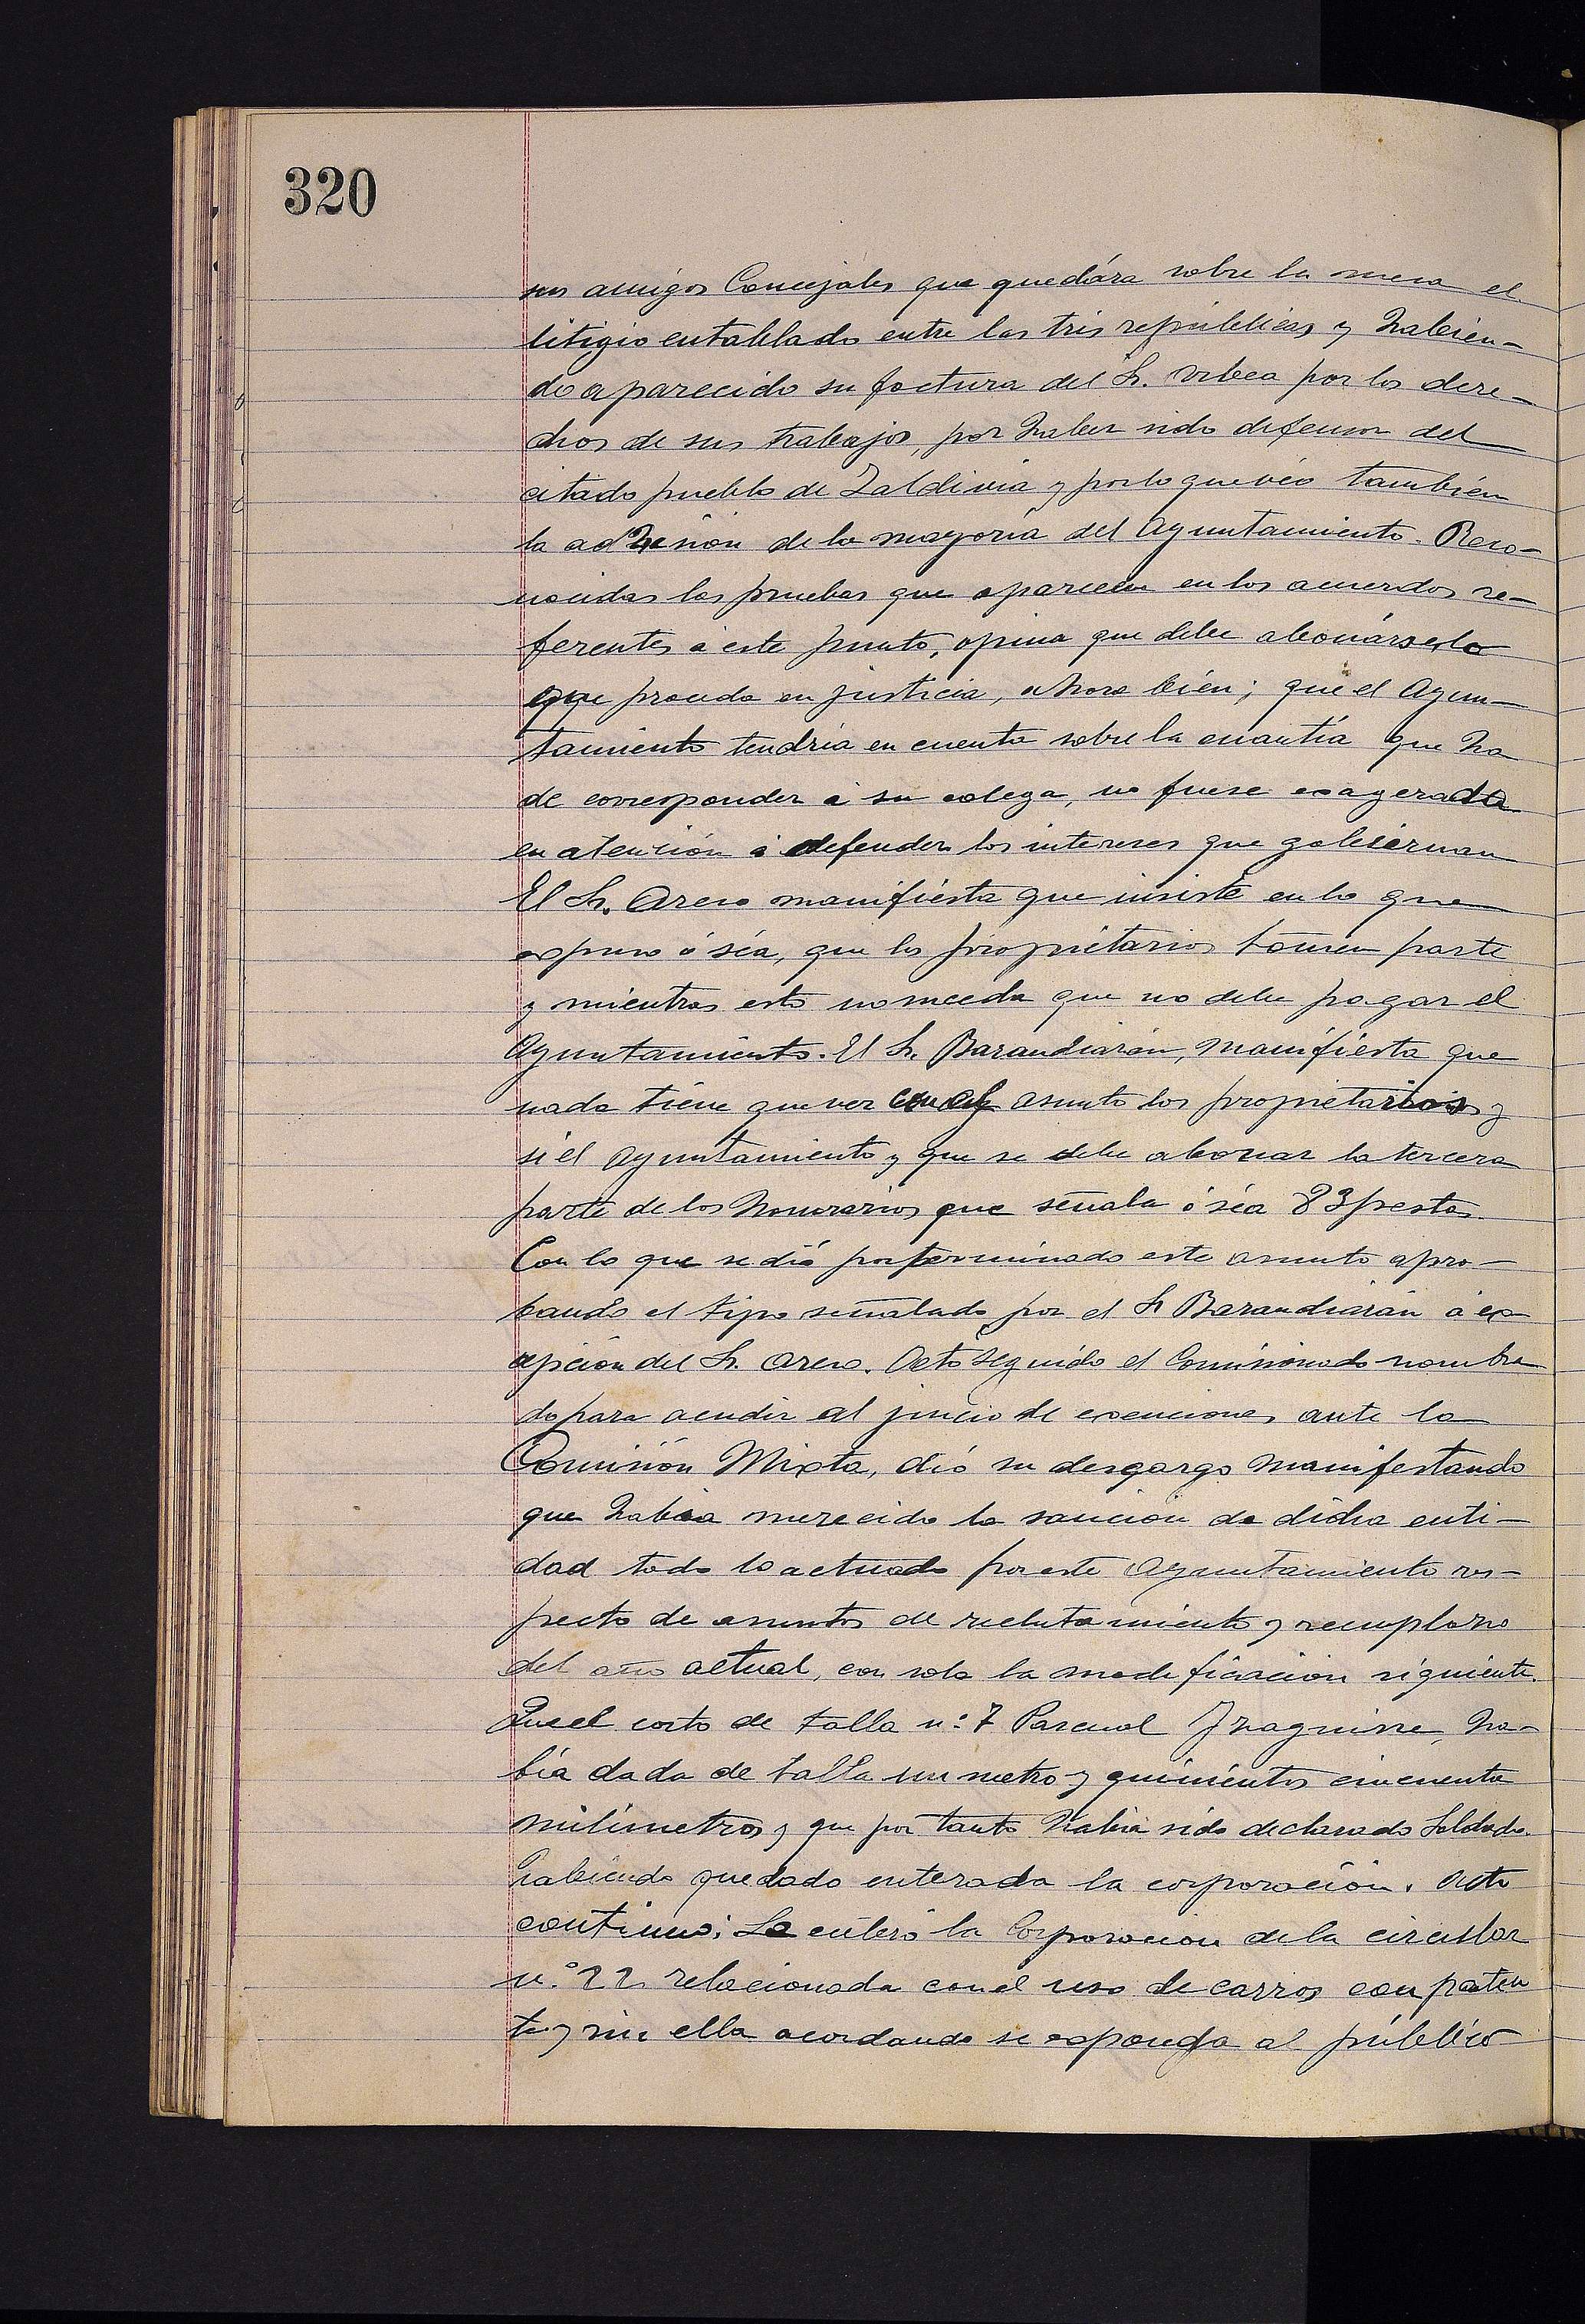 320
sus amigos Concejales que quedára sobre la mesa el
litigio entablado entre las tres repúblicas y habien-
do aparecido su factura del Sr. Urbea por los dere-
chos de sus trabajos, por haber sido defensor del
citado pueblo de Zaldivia y por lo que véo también
la adhesión de la mayoría del Ayuntamiento. Reco-
nocidas las pruebas que aparecen en los acuerdos re-
ferentes á este punto, opina que debe abonársele lo
que proceda en justicia, ahora bién; que el Ayun-
tamiento tendría en cuenta sobre la cuantía que ha
de corresponder á su colega, no fuese exagerada
en atención á defender los intereses que gobiernan
El Sr. Areso manifiesta que insiste en lo que
expuso ó séa, que los propietarios tomen parte
y mientras esto no suceda que no debe pagar el
Ayuntamiento. El Sr. Barandiarán, manifiesta que
nada tiene que ver con el asunto los propietarios y
si el Ayuntamiento y que se debe abonar la tercera
parte de los honorarios que señala ó séa 83 pestas.
Con lo que se dió por terminado este asunto apro-
bando el tipo señalado por el Sr Barandiarán á ex-
cpción del Sr. Areso. Acto seguido el Comisionado nombra
do para acudir al juicio de exenciones ante la
Comisión Mixta, dió su desgargo manifestando
que habia merecido la sanción de dicha enti-
dad todo lo actuado por este Ayuntamiento res-
pecto de asuntos de reclutamiento y reemplazo
del año actual, con sola la modificación siguiente.
Que el corto de talla n.º 7 Pascual Iraguirre, ha-
bía dado de talla un metro y quinientos cincuenta
milímetros y que por tanto habia sido declarado Soldado.
habiendo quedado enterada la corporación. Acto
continuo; Se enteró la Corporacion de la circular
n.º 22 relacionada con el uso de carros con paten
te y sin ella acordando se exponga al público